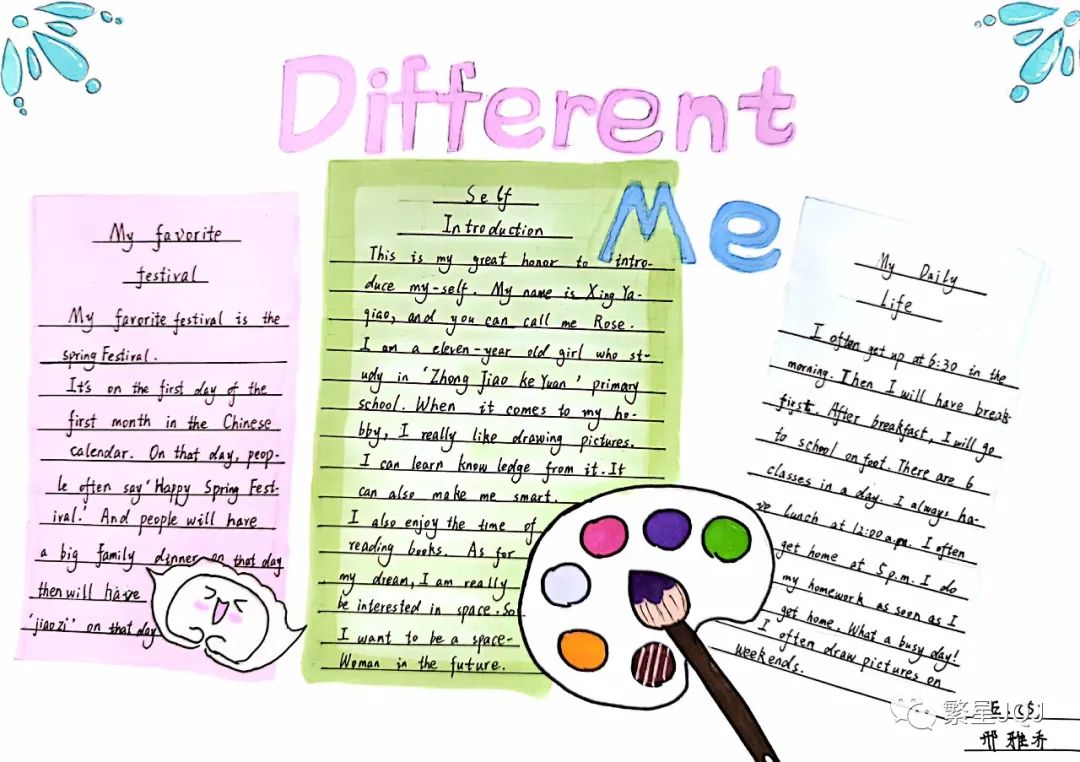 Different
Me
My favorite
festival
My favorite festival is the
spring Festival.
It's on the first day of the
first month in the Chinese
calendar. On that day, peop-
le often say 'Happy Spring Fest-
ival.' And people will have
a big family dinner on that day
then will have
'jiaozi' on that day
Self
Introduction
This is my great honor to intro-
duce my-self. My name is Xing Ya-
qiao, and you can call me Rose.
I am a eleven-year old girl who st-
udy in 'Zhong Jiao ke Yuan' primary
school. When it comes to my ho-
bby, I really like drawing pictures.
I can learn know ledge from it. It
can also make me smart.
I also enjoy the time of
reading books. As for
my dream, I am really
be interested in space. So
I want to be a space-
Woman in the future.
My Daily
Life
I often get up at 6:30 in the
morning. Then I will have break-
first. After breakfast, I will go
to school on foot. There are 6
classes in a day. I always ha-
ve lunch at 12:00a.m. I often
get home at 5p.m. I do
my homework as soon as I
get home. What a busy day!
I often draw pictures on
weekends.
繁星JQJ
邢雅乔